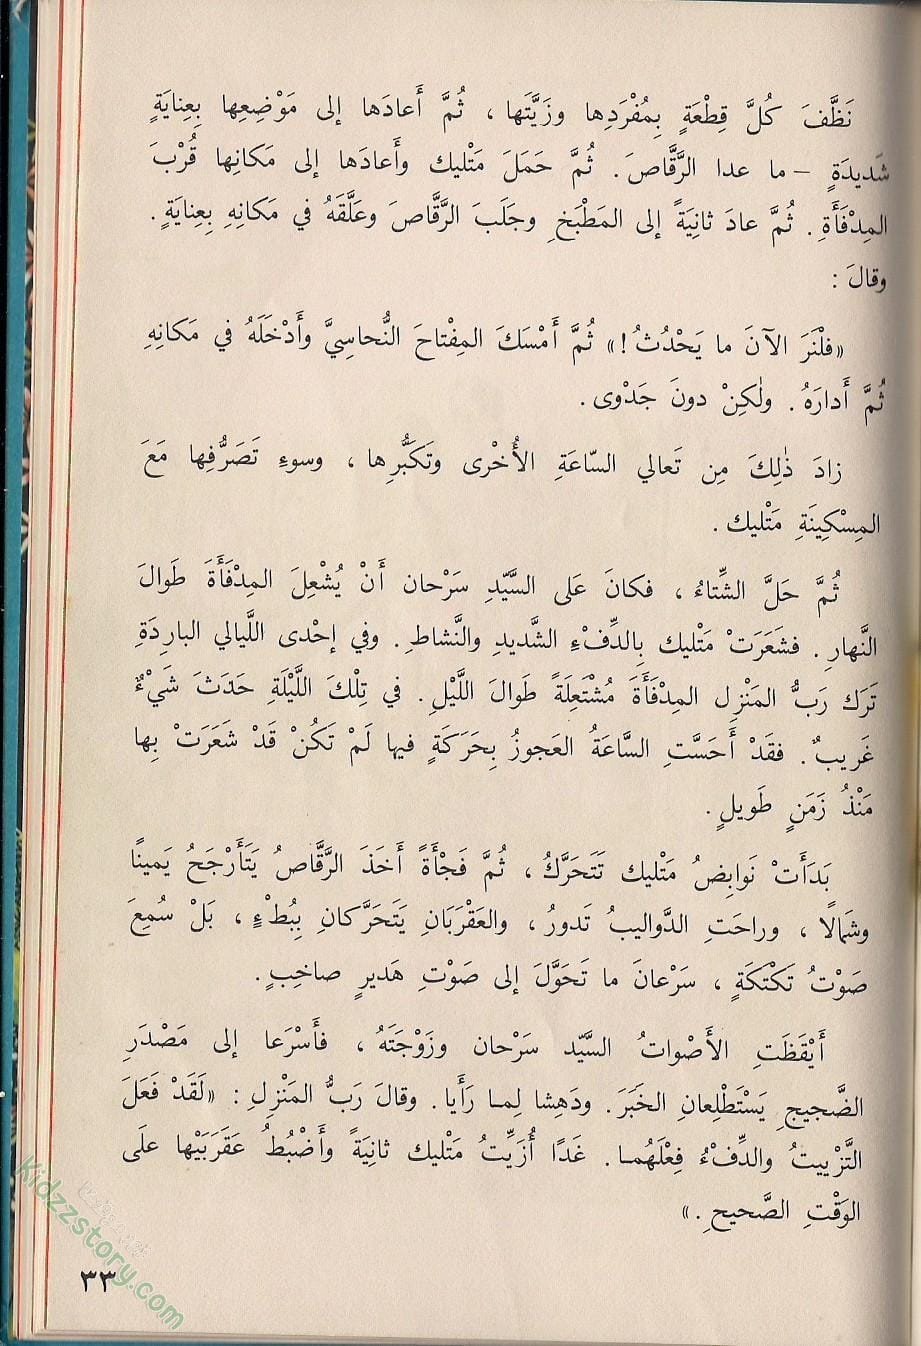 نَظَّفَ كُلَّ قِطْعَةٍ بِمُفْرَدِها وزَيَّتَها ، ثُمَّ أَعادَها إلى مَوْضِعِها بِعِنايَةٍ
شَديدَةٍ – ما عدا الرَّقَّاصَ. ثُمَّ حَمَلَ مَتْليك وأَعادَها إلى مَكانِها قُرْبَ
المِدْفَأَةِ. ثُمَّ عادَ ثانِيَةً إلى المَطْبَخِ وجَلَبَ الرَّقَّاصَ وعَلَّقَهُ في مَكانِهِ بِعِنايَةٍ.
وقالَ :
«فلْنَرَ الآنَ ما يَحْدُثُ!» ثُمَّ أَمْسَكَ المِفْتاحَ النُّحاسِيَّ وأَدْخَلَهُ في مَكانِهِ
ثُمَّ أَدارَهُ. ولٰكِنْ دونَ جَدْوى.
زادَ ذٰلِكَ مِن تَعالي السّاعَةِ الأُخْرى وتَكَبُّرِها ، وسوءِ تَصَرُّفِها مَعَ
المِسْكِينَةِ مَتْليك.
ثُمَّ حَلَّ الشِّتاءُ ، فكانَ عَلى السَّيِّدِ سَرْحان أَنْ يُشْعِلَ المِدْفَأَةَ طَوالَ
النَّهارِ. فشَعَرَتْ مَتْليك بِالدِّفْءِ الشَّديدِ والنَّشاطِ. وفي إحْدى اللَّيالي البارِدَةِ
تَرَك رَبُّ المَنْزِلِ المِدْفَأَةَ مُشْتَعِلَةً طَوالَ اللَّيْلِ. في تِلْكَ اللَّيْلَةِ حَدَثَ شَيْءٌ
غَريبٌ. فقَدْ أَحَسَّتِ السَّاعَةُ العَجوزُ بِحَرَكَةٍ فيها لَمْ تَكُنْ قَدْ شَعَرَتْ بِها
مَنْذُ زَمَنٍ طَويلٍ.
بَدَأَتْ نَوابِضُ مَتْليك تَتَحَرَّكُ ، ثُمَّ فَجْأَةً أَخَذَ الرَّقَّاصُ يَتَأَرْجَحُ يَمينًا
وشَمالًا ، وراحَتِ الدَّواليبُ تَدورُ ، والعَقْرَبَانِ يَتَحَرَّكانِ بِبُطْءٍ ، بَلْ سُمِعَ
صَوْتُ تَكْتَكَةٍ ، سَرْعانَ ما تَحَوَّلَ إلى صَوْتِ هَديرٍ صاخِبٍ.
أَيْقَظَتِ الأَصْواتُ السَّيِّد سَرْحان وزَوْجَتَهُ ، فأَسْرَعا إلى مَصْدَرِ
الضَّجيجِ يَسْتَطْلِعانِ الخَبَرَ. ودَهِشا لِما رَأَيا. وقالَ رَبُّ المَنْزِلِ : «لَقَدْ فَعَلَ
التَّزْييتُ والدِّفْءُ فِعْلَهُما. غَدًا أُزَيِّتُ مَتْليك ثانِيَةً وأَضْبُطُ عَقَرَبَيْها علَى
الوَقْتِ الصَّحيحِ.»
Kidzzstory.com
٣٣